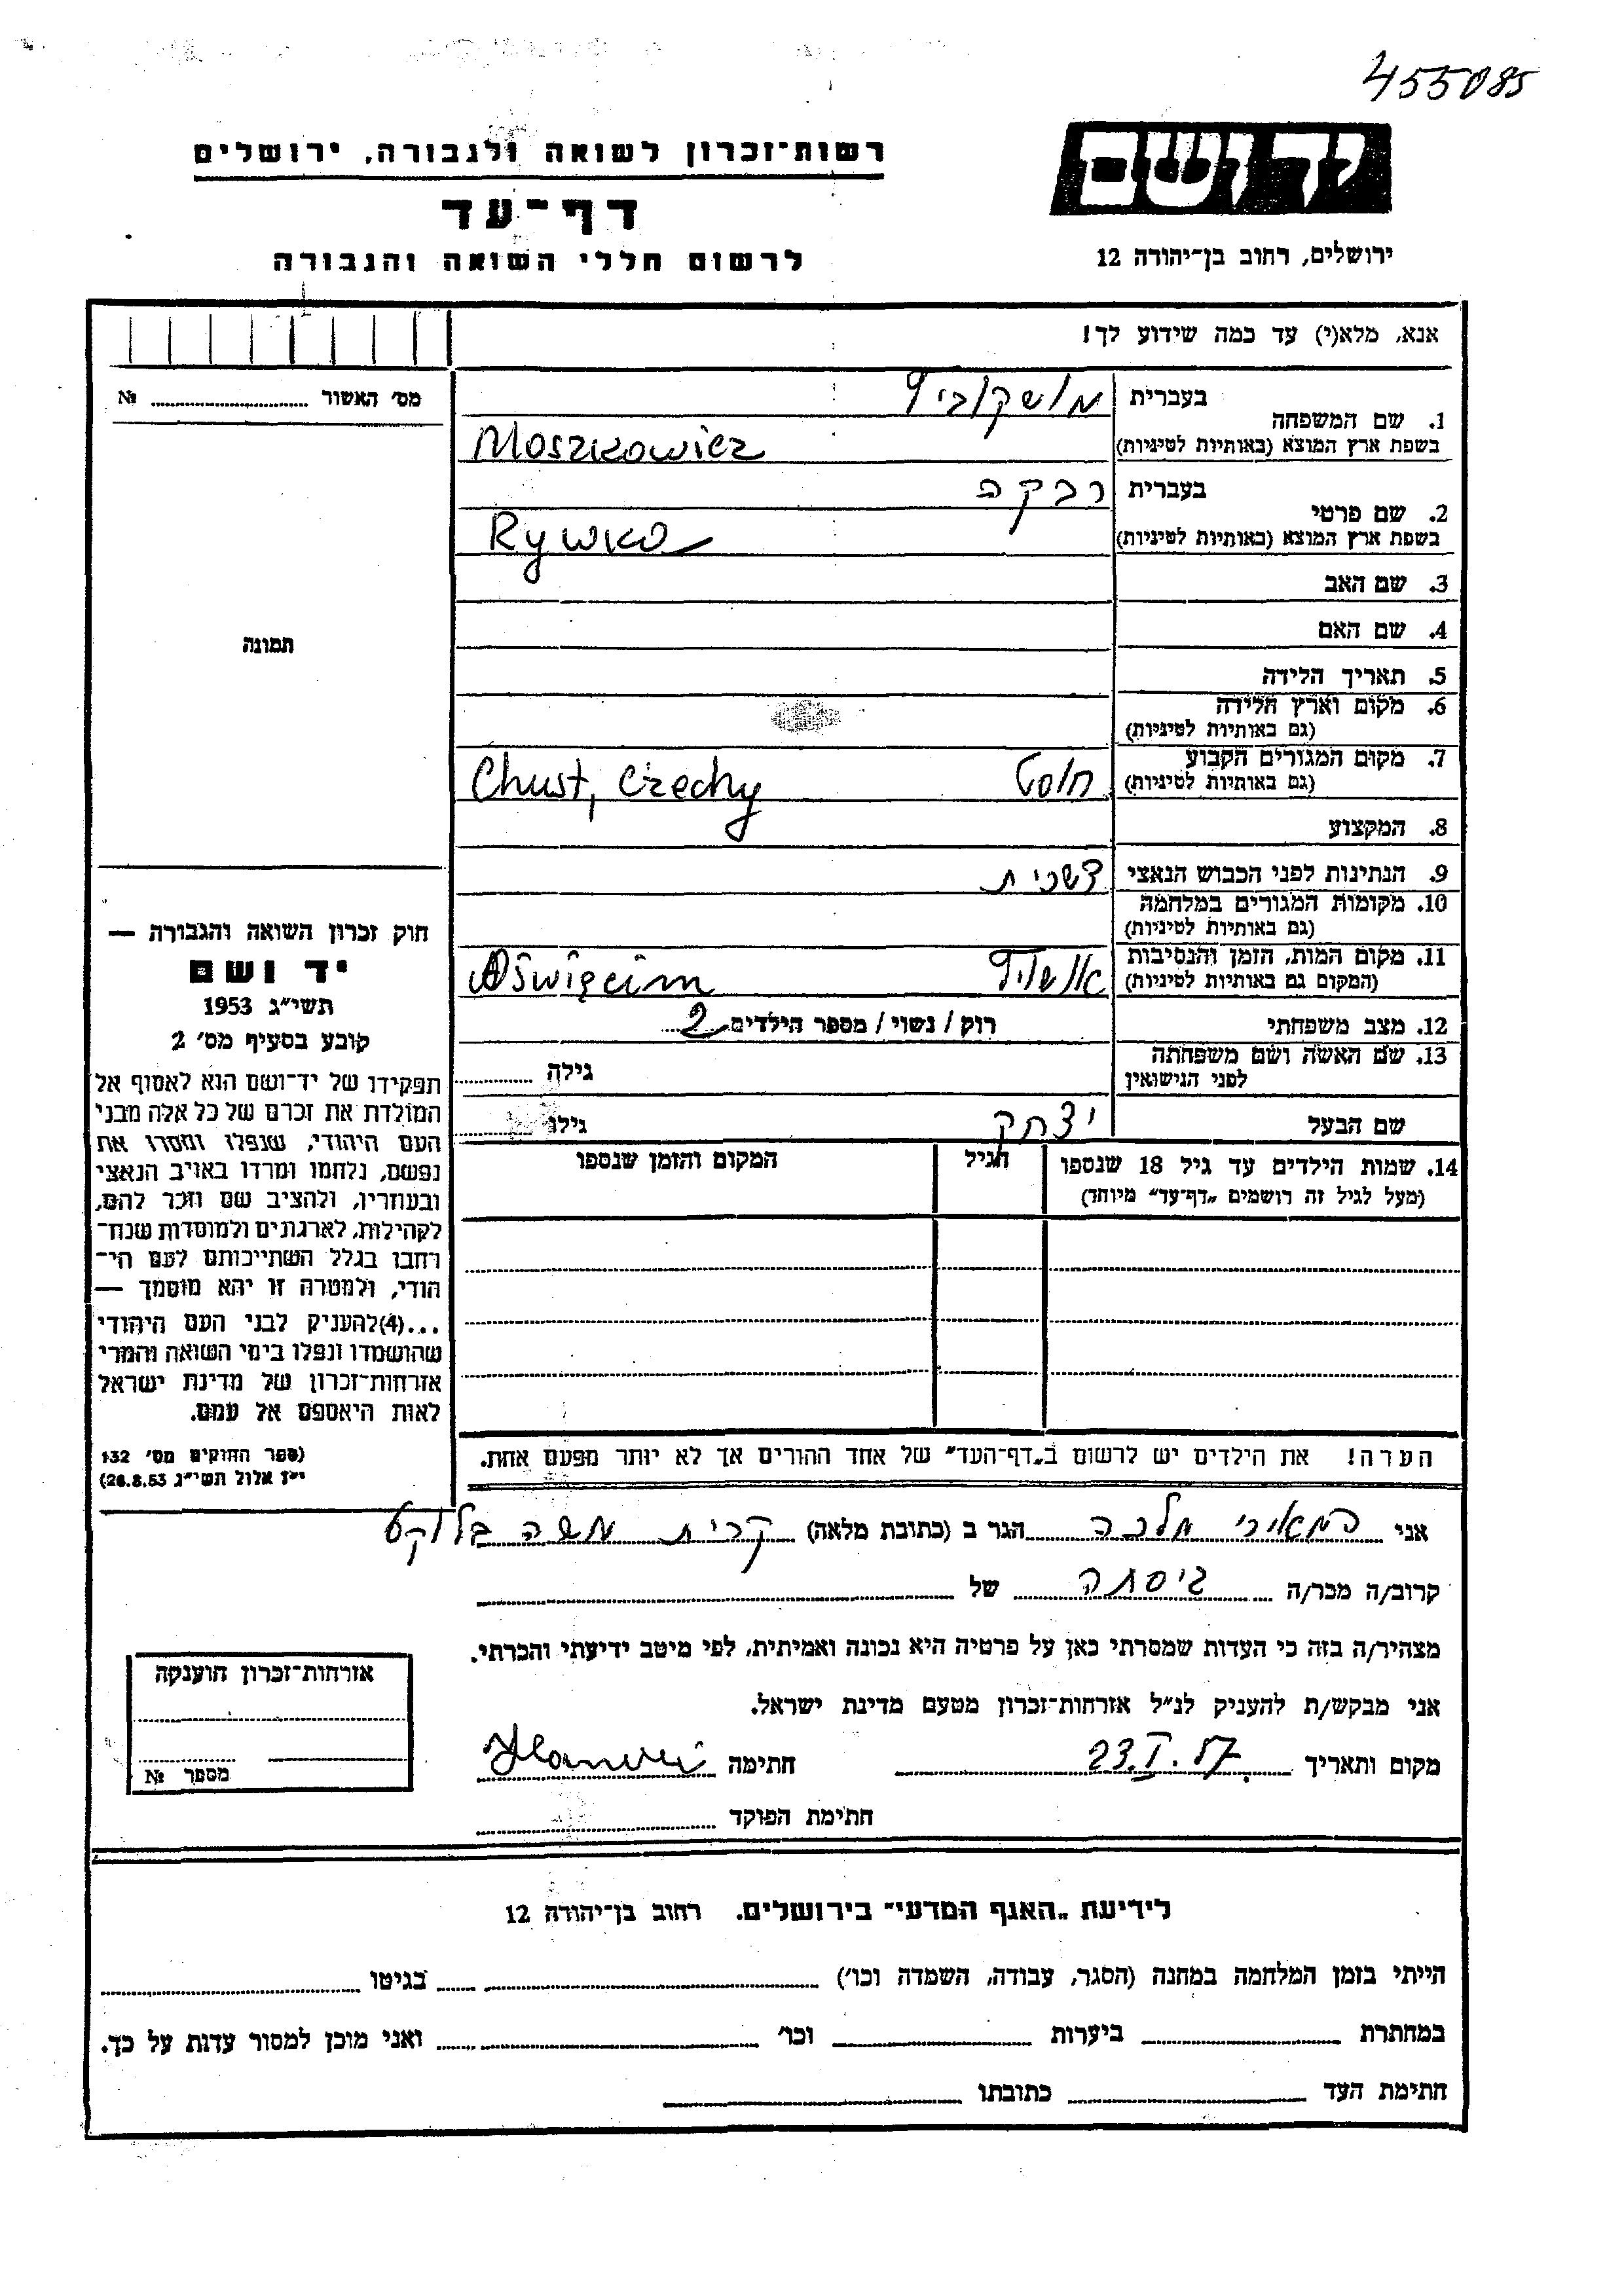 455085
יד ושם
ירושלים, רחוב בן־יהודה 12
רשות־זכרון לשואה ולגבורה, ירושלים
דף־עד
לרשום חללי השואה והגבורה
אנא, מלא(י) עד כמה שידוע לך!
מס׳ האשור № 
1. שם המשפחה
בעברית מושקוביץ
בשפת ארץ המוצא (באותיות לטיניות) Moszkowicz
2. שם פרטי
בעברית רבקה
בשפת ארץ המוצא (באותיות לטיניות) Rywka
3. שם האב
4. שם האם
5. תאריך הלידה
6. מקום וארץ הלידה
(גם באותיות לטיניות)
7. מקום המגורים הקבוע
(גם באותיות לטיניות) חוסט Chust, Czechy
8. המקצוע
9. הנתינות לפני הכבוש הנאצי
10. מקומות המגורים במלחמה
(גם באותיות לטיניות)
11. מקום המות, הזמן והנסיבות
(המקום גם באותיות לטיניות) אושויץ Oświęcim
12. מצב משפחתי רוק / נשוי / מספר הילדים 2
13. שם האשה ושם משפחתה
לפני הנישואין גילה
שם הבעל יצחק גילו
14. שמות הילדים עד גיל 18 שנספו
(מעל לגיל זה רושמים „דף־עד״ מיוחד)
הגיל
המקום והזמן שנספו
הערה! את הילדים יש לרשום ב„דף־העד״ של אחד ההורים אך לא יותר מפעם אחת.
תמונה
חוק זכרון השואה והגבורה —
יד ושם
תשי״ג 1953
קובע בסעיף מס׳ 2
תפקידו של יד־ושם הוא לאסוף אל
המולדת את זכרם של כל אלה מבני
העם היהודי, שנפלו ומסרו את
נפשם, נלחמו ומרדו באויב הנאצי
ובעוזריו, ולהציב שם וזכר להם,
לקהילות, לארגונים ולמוסדות שנח־
רבו בגלל השתייכותם לעם הי־
הודי, ולמטרה זו יהא מוסמך —
...(4) להעניק לבני העם היהודי
שהושמדו ונפלו בימי השואה והמרי
אזרחות־זכרון של מדינת ישראל
לאות היאספם אל עמם.
(ספר החוקים מס׳ 132
י״ז אלול תשי״ג 28.8.53)
אני המאירי מלכה הגר ב (כתובת מלאה) קרית משה
קרוב/ה מכר/ה גיסתה של
מצהיר/ה בזה כי העדות שמסרתי כאן על פרטיה היא נכונה ואמיתית, לפי מיטב ידיעתי והכרתי.
אני מבקש/ת להעניק לנ״ל אזרחות־זכרון מטעם מדינת ישראל.
מקום ותאריך 23.I.57 חתימה
חתימת הפוקד
אזרחות־זכרון הוענקה
מספר №
לידיעת „האגף המדעי״ בירושלים. רחוב בן־יהודה 12
הייתי בזמן המלחמה במחנה (הסגר, עבודה, השמדה וכו׳) בגיטו
במחתרת ביערות וכו׳ ואני מוכן למסור עדות על כך.
חתימת העד כתובתו